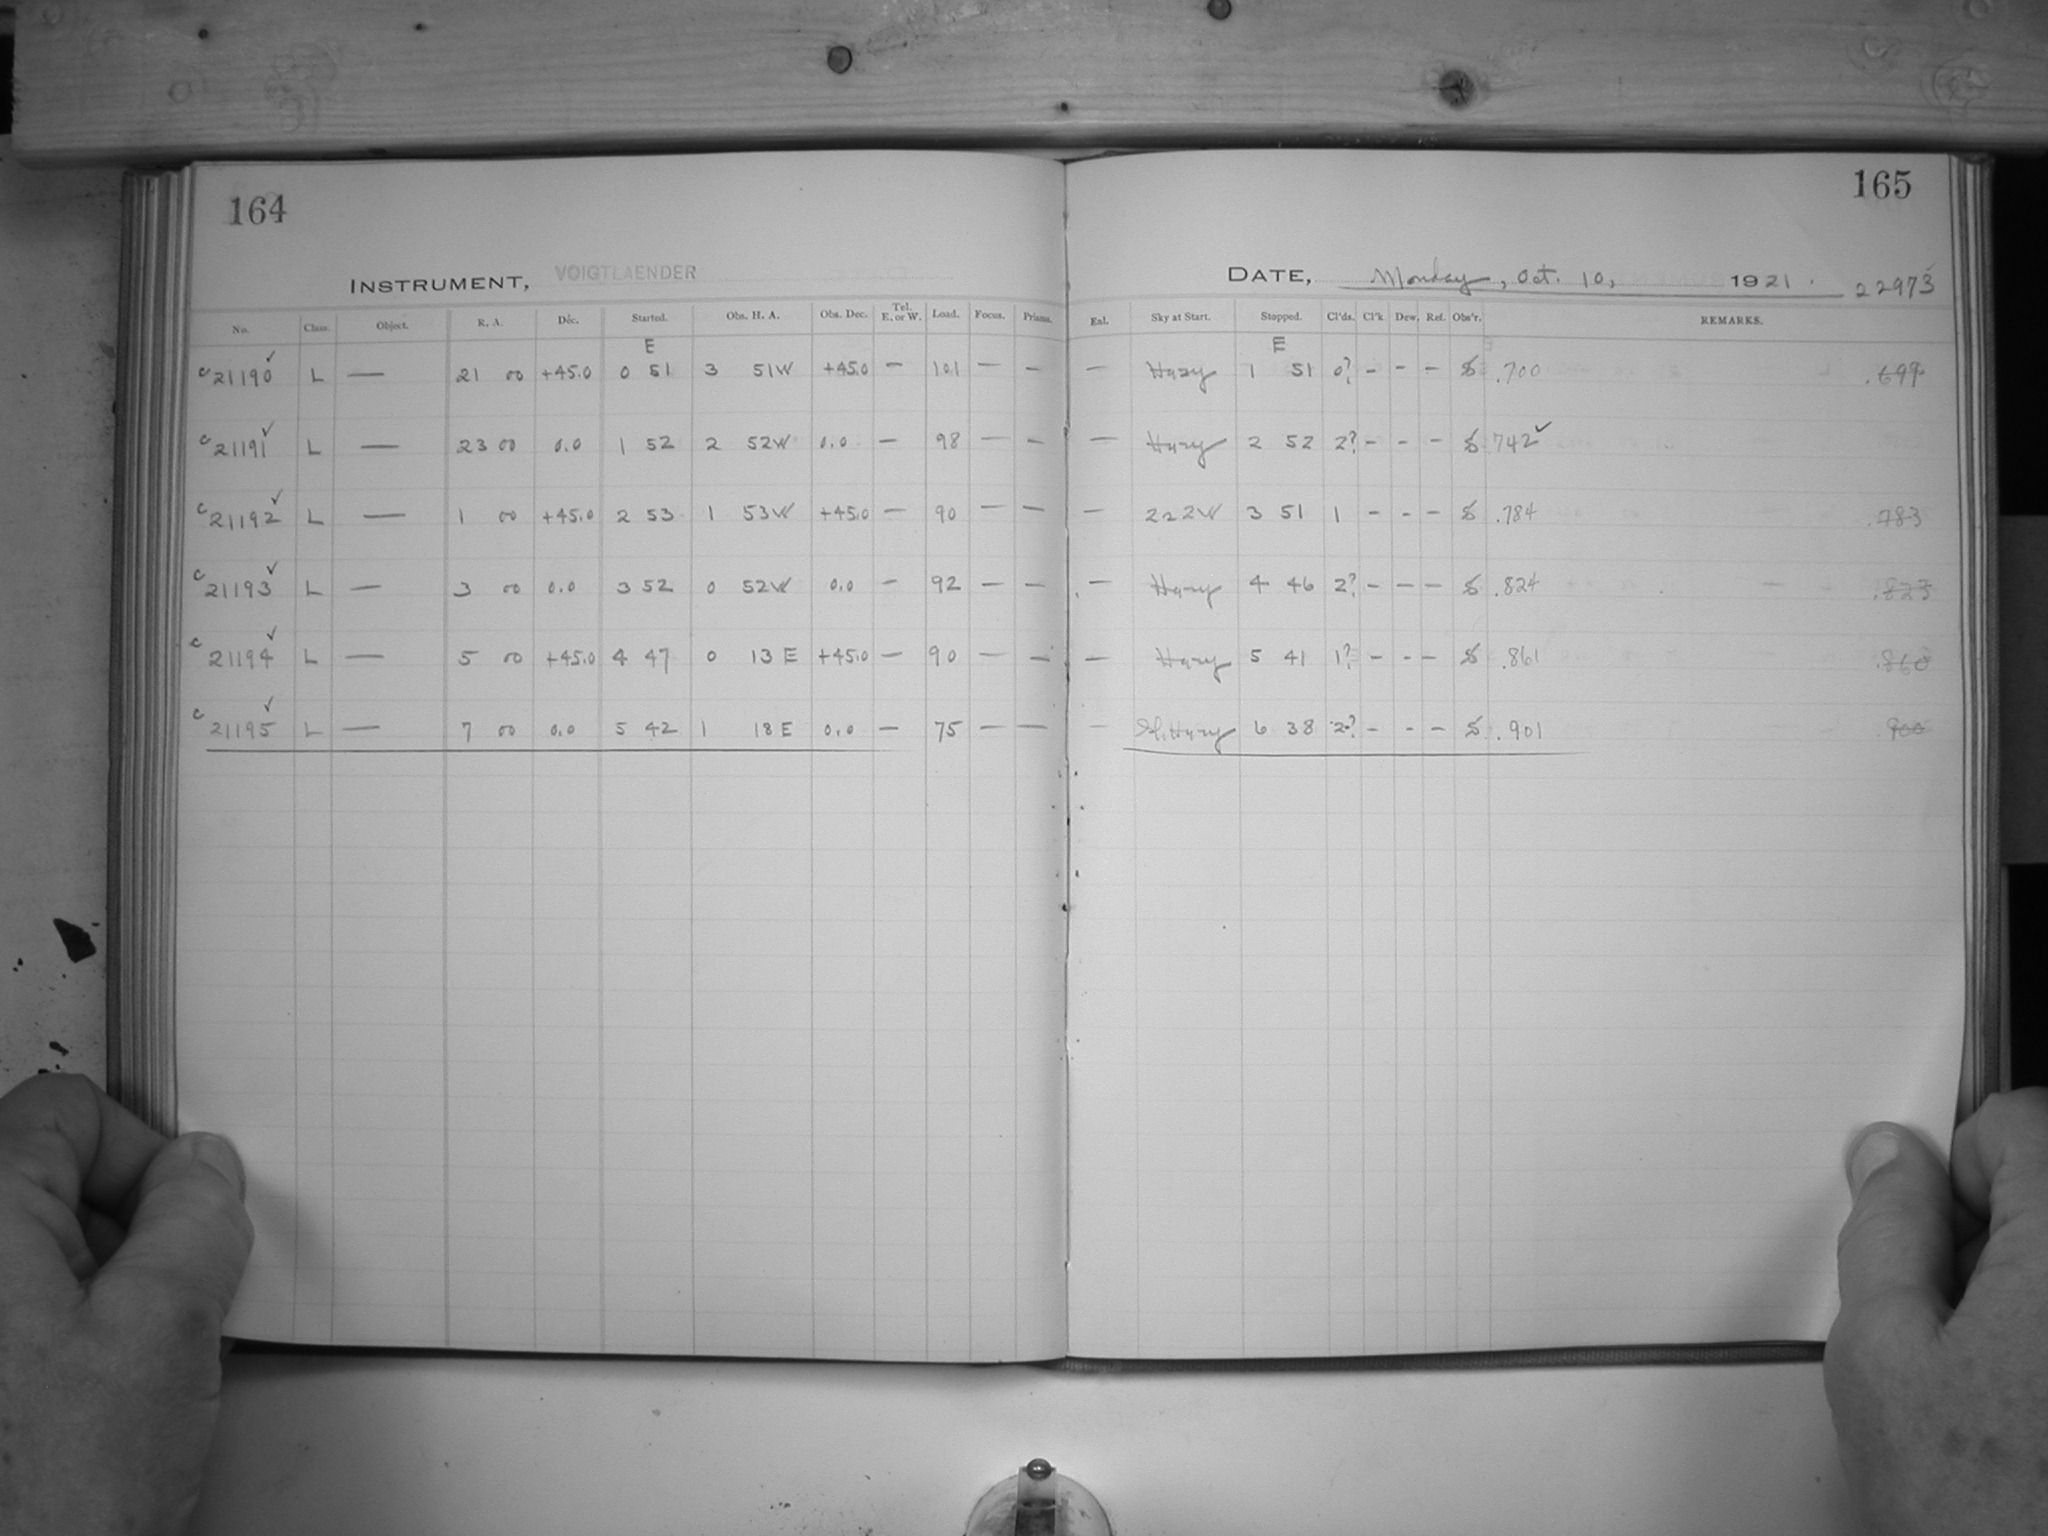 164
165
INSTRUMENT, VOIGTLAENDER
DATE, Monday, Oct. 10, 1921. 22973
No. Class. Object. R. A. Dec. Started. Obs. H. A. Obs. Dec. Tel. E. or W. Load. Focus. Prisms. Eal. Sky at Start. Stopped. Cl'ds. Cl'k Dew. Ref. Obs'r. REMARKS.
E E
c 21190 ✓ L — 21 00 +45.0 0 51 3 51W +45.0 — 101 — — — Hazy 1 51 0? - - - S .700 .699
c 21191 ✓ L — 23 00 0.0 1 52 2 52W 0.0 — 98 — — — Hazy 2 52 2? - - - S 742 ✓
c 21192 ✓ L — 1 00 +45.0 2 53 1 53W +45.0 — 90 — — — 222W 3 51 1 - - - S .784 .783
c 21193 ✓ L — 3 00 0.0 3 52 0 52W 0.0 — 92 — — — Hazy 4 46 2? - - - S .824 .823
c 21194 ✓ L — 5 00 +45.0 4 47 0 13 E +45.0 — 90 — — — Hazy 5 41 1? - - - S .861 .860
c 21195 ✓ L — 7 00 0.0 5 42 1 18 E 0.0 — 75 — — — Hazy 6 38 2? - - - S .901 900